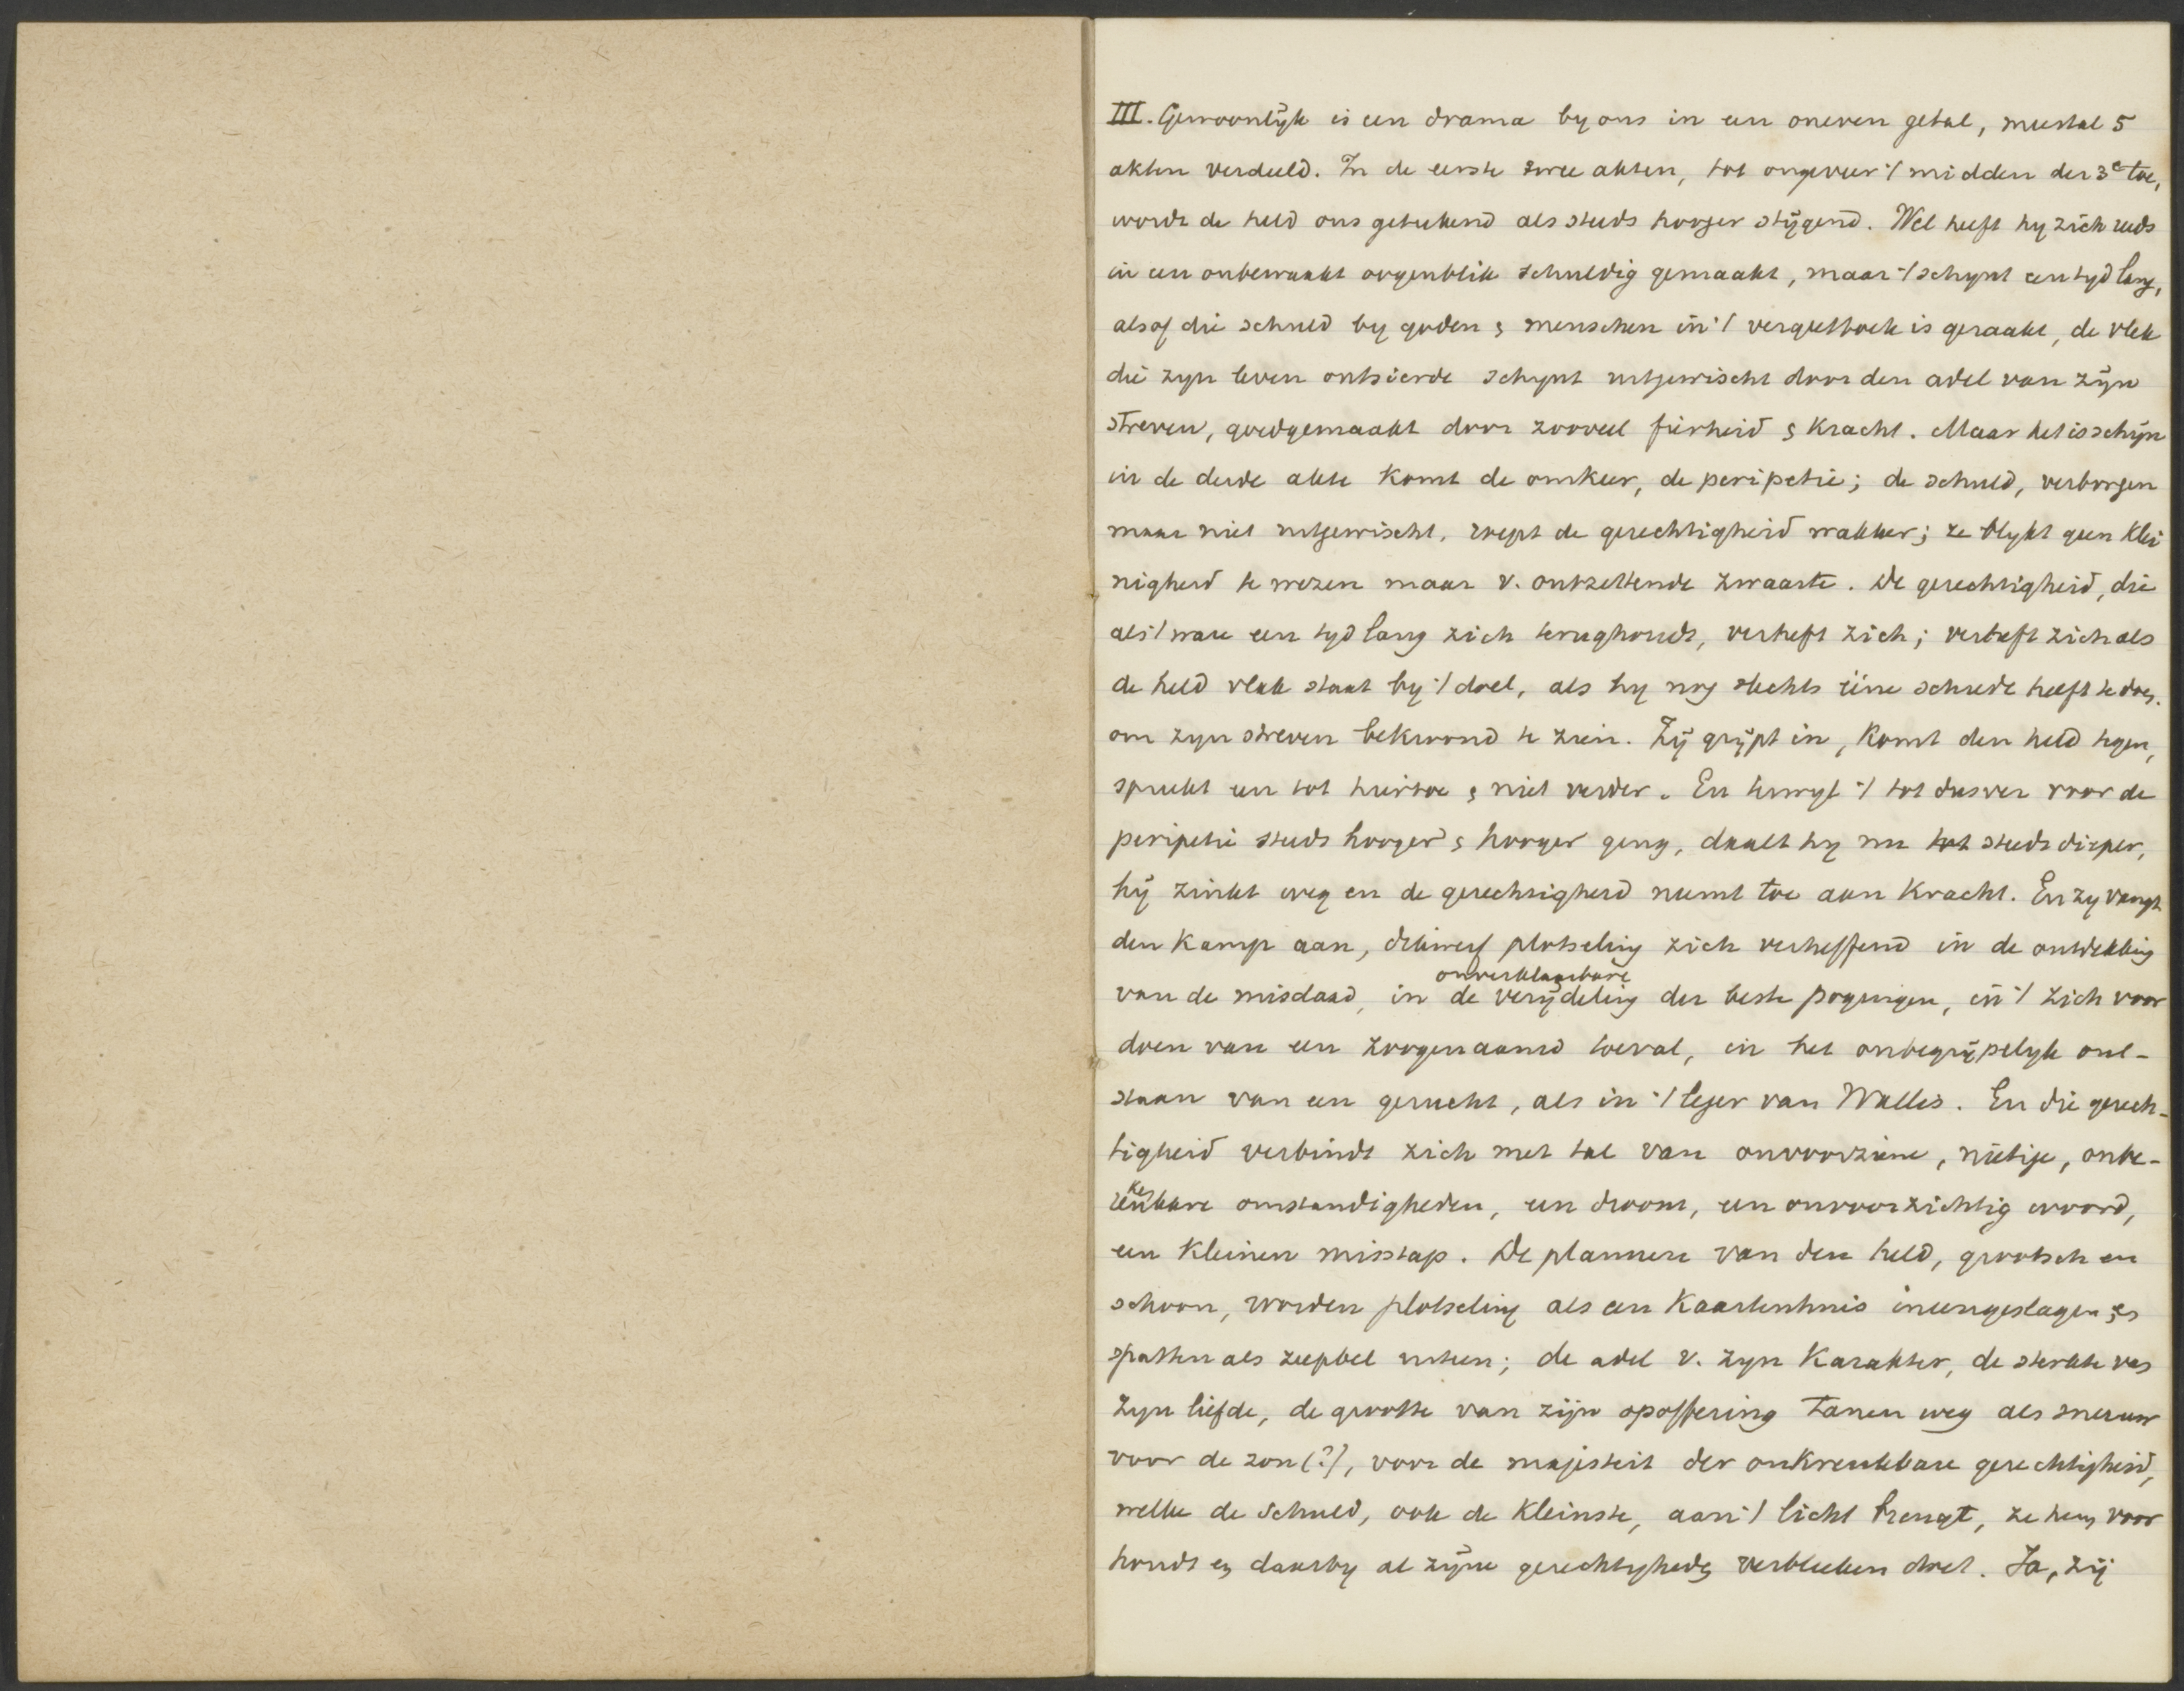 III. Gewoonlijk is een drama by ons in een oneven getal, meestal 5
akten verdeeld. In de eerste twee akten, tot ongeveer 't midden der 3e toe,
wordt de held ons geteekend als steeds hooger stijgend. Wel heeft hy zich reeds
in een onbewaakt oogenblik schuldig gemaakt, maar 't schynt een tyd lang,
alsof die schuld by goden & menschen in 't vergeetboek is geraakt, de vlek
die zyn leven ontsierde schynt uitgewischt door den adel van zijn
streven, goedgemaakt door zooveel fierheid & kracht. Maar het is schijn
in de derde akte komt de omkeer, de peripetie; de schuld, verborgen
maar niet uitgewischt, roept de gerechtigheid wakker; ze blykt geen klei
nigheid te wezen maar v. ontzettende zwaarte. De gerechtigheid, die
als 't ware een tyd lang zich terughoudt, verheft zich; verheft zich als
de held vlak staat by 't doel, als hy nog slechts ééne schrede heeft te doen
om zyn streven bekroond te zien. Zij grijpt in, komt den held tegen,
spreekt een tot hiertoe & niet verder. En terwyl 't tot dusver voor de
peripetie steeds hooger & hooger ging, daalt hy nu tot steeds dieper,
hij zinkt weg en de gerechtigheid neemt toe aan kracht. En zy vangt
den kamp aan, dikwerf plotseling zich verheffend in de ontdekking
van de misdaad, in de onverklaarbare verijdeling der beste pogingen, in 't zich voor
doen van een zoogenaamd toeval, in het onbegrijpelyk ont-
staan van een gerucht, als in 't leger van Wallis. En die gerech-
tigheid verbindt zich met tal van onvoorziene, nietige, onbe-
rekenbare omstandigheden, een droom, een onvoorzichtig woord,
een kleinen misstap. De plannen van den held, grootsch en
schoon, worden plotseling als een kaartenhuis ineengeslagen &
spatten als zeepbel uiteen; de adel v. zyn karakter, de sterkte van
zyn liefde, de grootte van zijn opoffering tanen weg als sneeuw
voor de zon (?), voor de majesteit der onkreukbare gerechtigheid,
welke de schuld, ook de kleinste, aan 't licht brengt, ze hem voor
houdt en daarby al zijne gerechtigheden verbleeken doet. Ja, zij